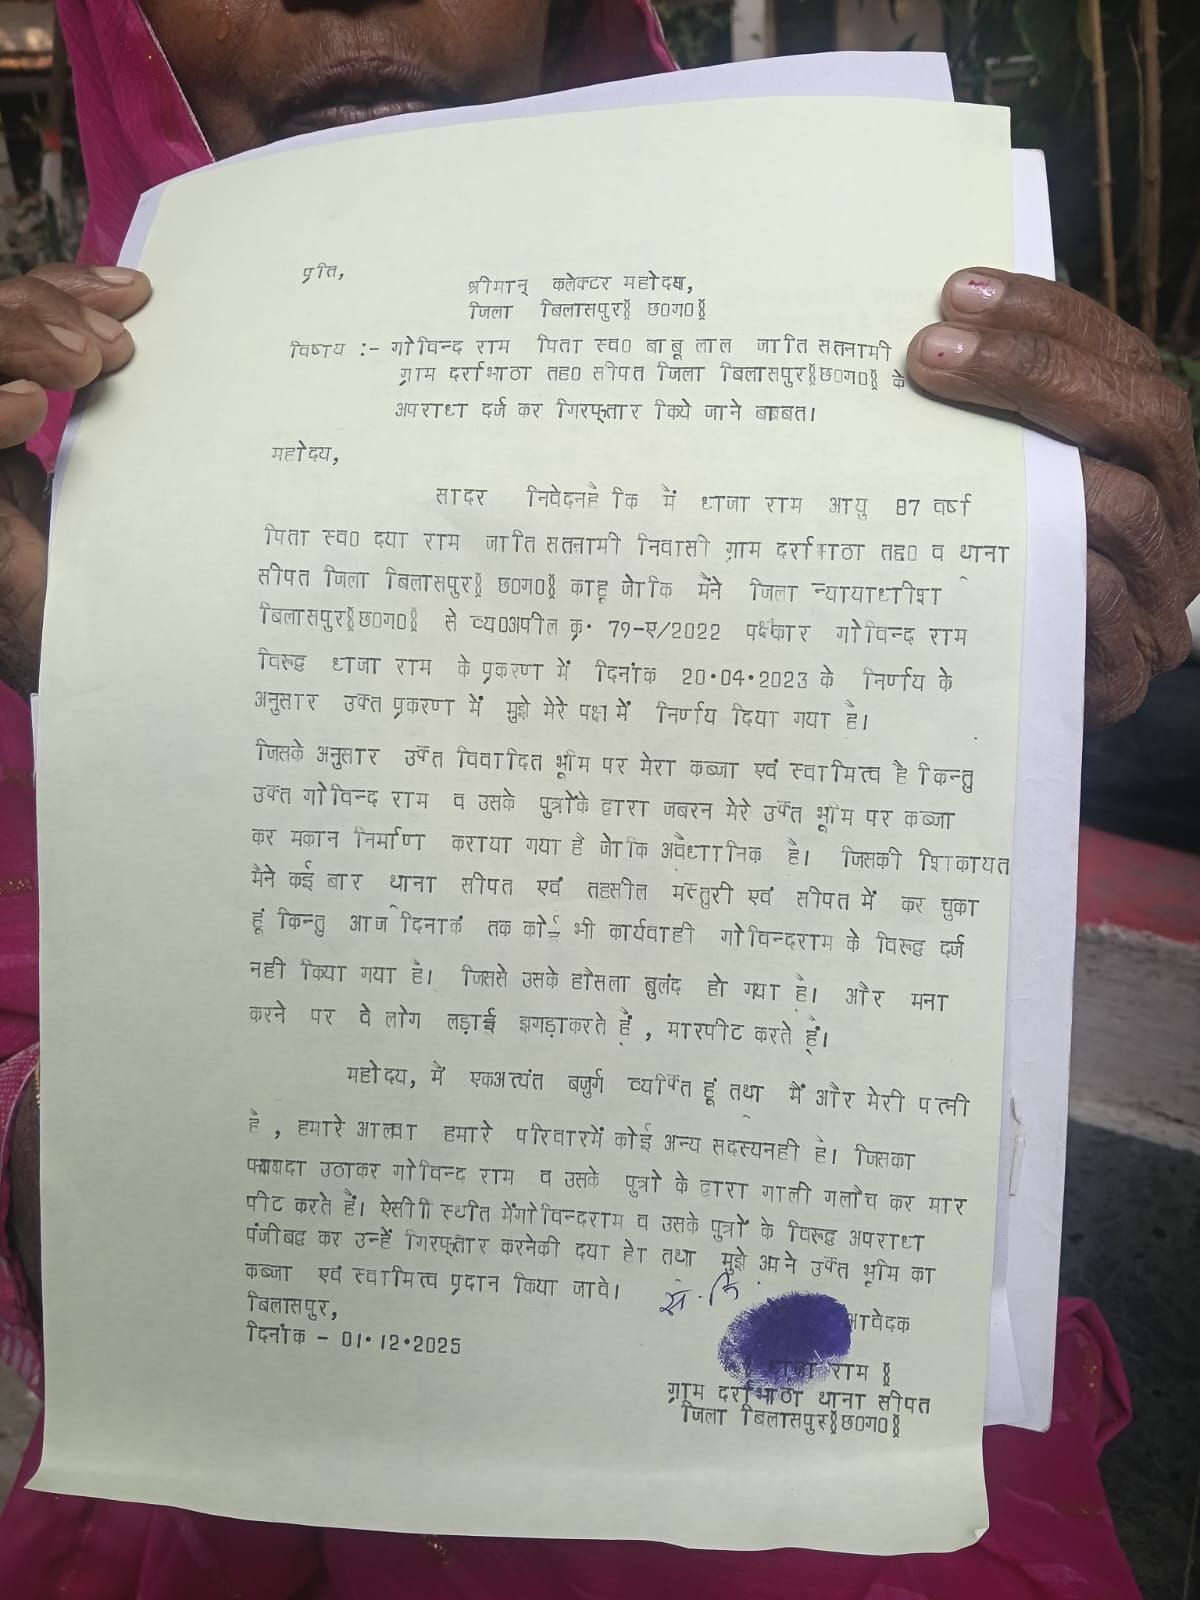 प्रति,
श्रीमान् कलेक्टर महोदय,
जिला बिलासपुर§ छ0ग0§
विषय :- गोविन्द राम पिता स्व0 बाबू लाल जाति सतनामी
ग्राम दर्राभाठा तह0 सीपत जिला बिलासपुर§छ0ग0§ के
अपराध दर्ज कर गिरफ्तार किये जाने बाबत।
महोदय,
सादर निवेदनहै कि मैं धाजा राम आयु 87 वर्ष
पिता स्व0 दया राम जाति सतनामी निवासी ग्राम दर्राभाठा तह0 व थाना
सीपत जिला बिलासपुर§ छ0ग0§ काहू जोकि मैंने जिला न्यायाधीश
बिलासपुर§छ0ग0§ से व्य0अपील क्र. 79-ए/2022 पक्षकार गोविन्द राम
विरूद्ध धाजा राम के प्रकरण में दिनांक 20.04.2023 के निर्णय के
अनुसार उक्त प्रकरण में मुझे मेरे पक्ष में निर्णय दिया गया है।
जिसके अनुसार उक्त विवादित भूमि पर मेरा कब्जा एवं स्वामित्व है किन्तु
उक्त गोविन्द राम व उसके पुत्रोंके द्वारा जबरन मेरे उक्त भूमि पर कब्जा
कर मकान निर्माण कराया गया है जोकि अवैधानिक है। जिसकी शिकायत
मैने कई बार थाना सीपत एवं तहसील मस्तुरी एवं सीपत में कर चुका
हूं किन्तु आज दिनाकं तक कोई भी कार्यवाही गोविन्दराम के विरूद्ध दर्ज
नही किया गया है। जिससे उसके हौसला बुलंद हो गया है। और मना
करने पर वे लोग लड़ाई झगड़ाकरते हैं , मारपीट करते हैं।
महोदय, मैं एकअत्यंत बजुर्ग व्यक्ति हूं तथा मैं और मेरी पत्नी
है , हमारे आलवा हमारे परिवारमें कोई अन्य सदस्यनही है। जिसका
फायदा उठाकर गोविन्द राम व उसके पुत्रो के द्वारा गाली गलौच कर मार
पीट करते हैं। ऐसी स्थति मेंगोविन्दराम व उसके पुत्रों के विरूद्ध अपराध
पंजीबद्ध कर उन्हें गिरफ्तार करनेकी दया हो तथा मुझे अपने उक्त भूमि का
कब्जा एवं स्वामित्व प्रदान किया जावे।
बिलासपुर,
दिनांक - 01.12.2025
आवेदक
§ धाजा राम §
ग्राम दर्राभाठा थाना सीपत
जिला बिलासपुर§छ0ग0§